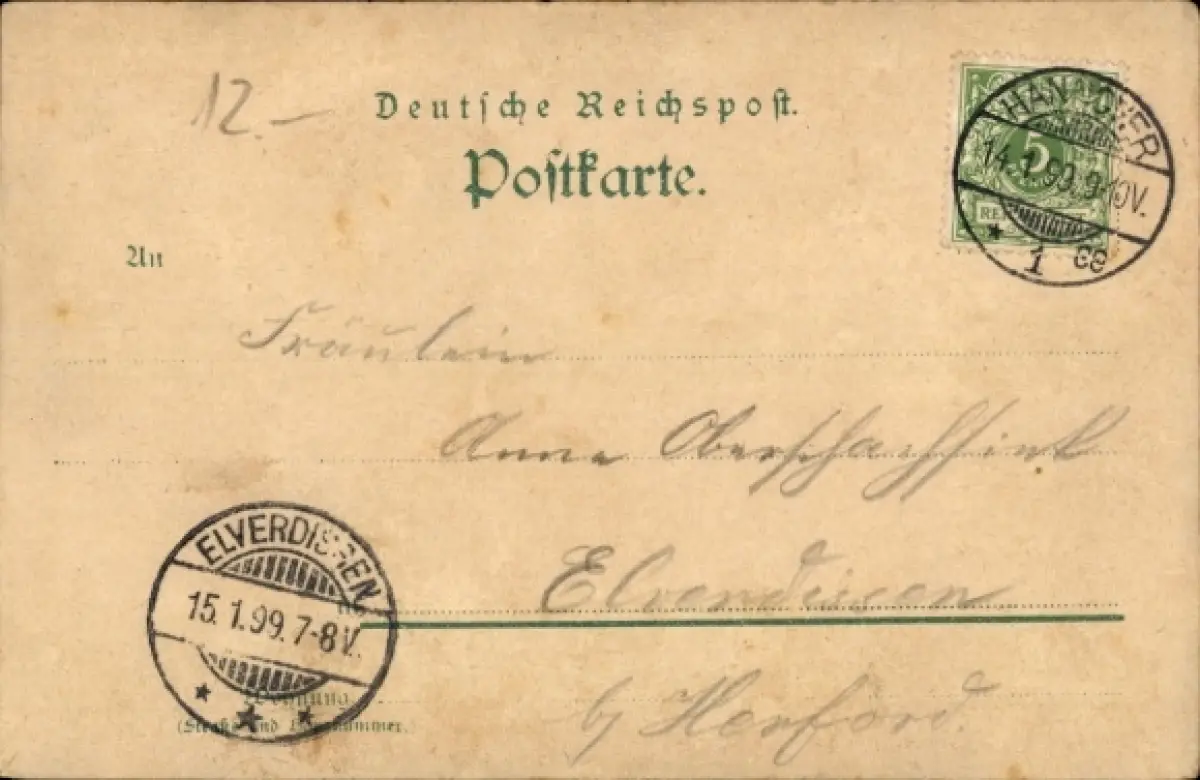 12.-
Deutsche Reichspost.
Postkarte.
HANNOVER
14.1.99.9-10V.
* 1 cc
5
An
Fräulein
Anna
Elverdissen
ELVERDISSEN
15.1.99.7-8V.
* * *
in
Wohnung
(Straße und Hausnummer.)
b/ Herford.